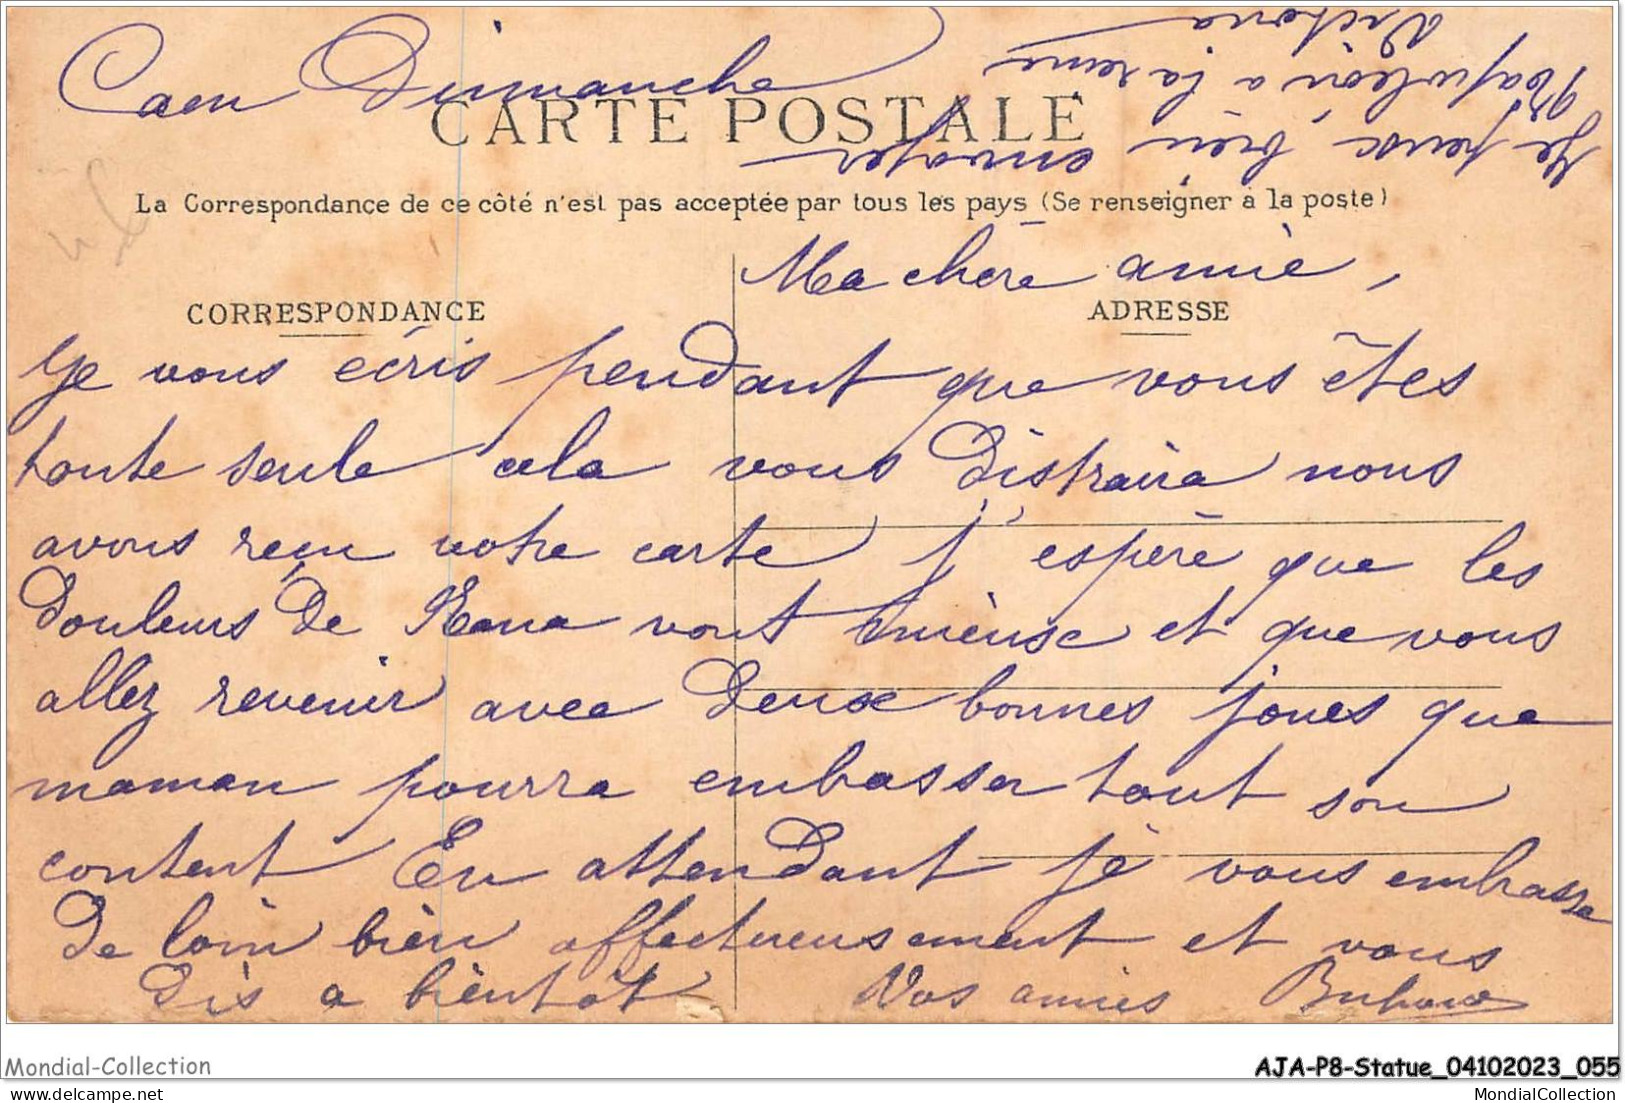 Caen Dimanche
Je pense bien envoyer
Napoléon a la reine
Victoria
CARTE POSTALE
La Correspondance de ce côté n'est pas acceptée par tous les pays (Se renseigner à la poste)
Ma chère amie,
CORRESPONDANCE
ADRESSE
Je vous écris pendant que vous êtes
toute seule cela vous distraira nous
avons reçu votre carte j'espère que les
douleurs de vont mieuse et que vous
allez revenir avec deux bonnes joues que
maman pourra embasser tout son
content En attendant je vous embrasse
de loin bien affectueusement et vous
dis a bientôt Vos amies
Mondial-Collection
AJA-P8-Statue_04102023_055
https://www.delcampe.net
MondialCollection